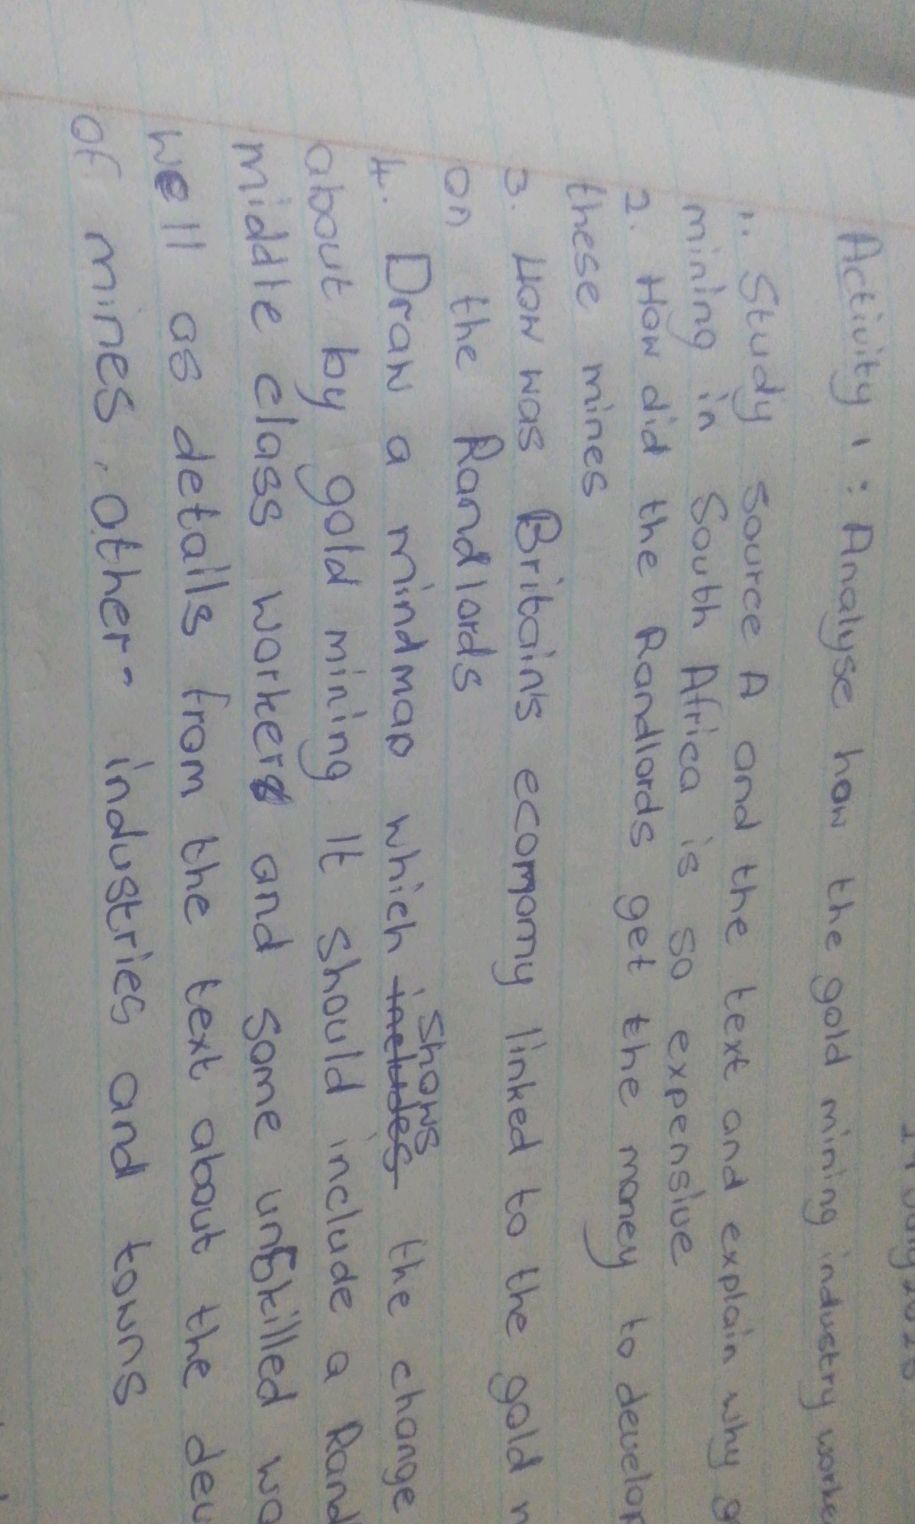 Activity 1 : Analyse how the gold mining industry
1. Study source A and the text and explain why
mining in South Africa is so expensive
2. How did the Randlords get the money to
these mines
3. How was Britain's ecomomy linked to the gold
on the Randlords
4. Draw a mindmap which includes shows the change
about by gold mining It should include a
middle class workers and some unskilled
well as details from the text about the
of mines, other- industries and towns